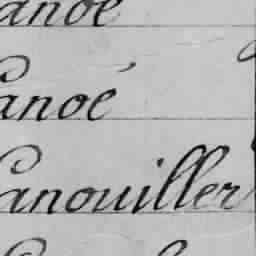 anoe
Canoé
Canouiller